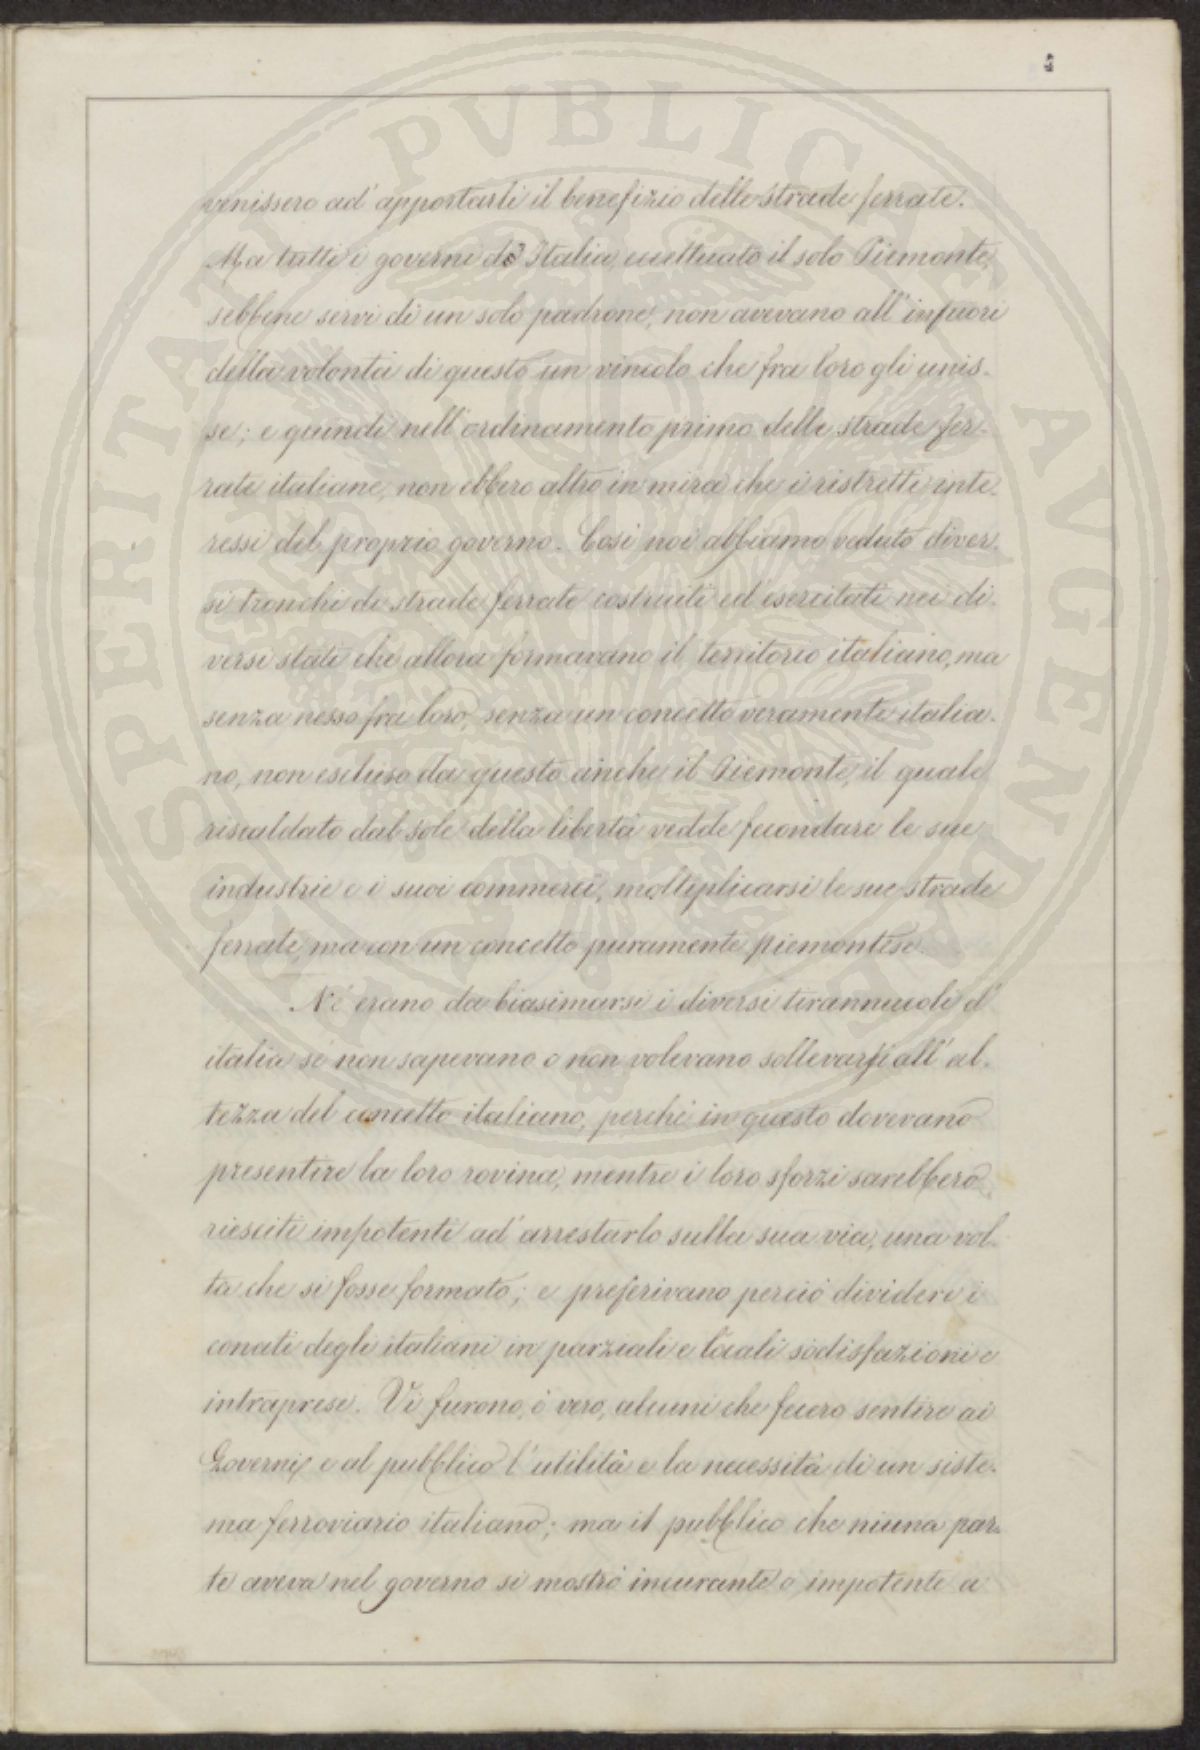 venissero ad' apportarli il benefizio delle strade ferrate.
Ma tutti i governi d' Italia, eccettuato il solo Piemonte,
sebbene servi di un solo padrone, non avevano all' infuori
della volontà di questo un vincolo che fra loro gli unis-
se; e quindi nell' ordinamento primo delle strade fer-
rate italiane, non ebbero altro in mira che i ristretti inte-
ressi del proprio governo. Così noi abbiamo veduto diver-
si tronchi di strade ferrate costruiti ed' esercitati nei di-
versi stati che allora formavano il territorio italiano, ma
senza nesso fra loro, senza un concetto veramente italia-
no, non escluso da questo anche il Piemonte, il quale
riscaldato dal sole della libertà vedde fecondare le sue
industrie e i suoi commerci, moltiplicarsi le sue strade
ferrate, ma con un concetto puramente piemontese.
Nè erano da biasimarsi i diversi tirannucoli d'
italia se non sapevano o non volevano sollevarsi all' al-
tezza del concetto italiano, perchè in questo dovevano
presentire la loro rovina, mentre i loro sforzi sarebbero
riesciti impotenti ad' arrestarlo sulla sua via, una vol-
ta che si fosse formato; e preferivano perciò dividere i
conati degli italiani in parziali e locali sodisfazioni e
intraprese. Vi furono, è vero, alcuni che fecero sentire ai
Governi e al pubblico l' utilità e la necessità di un siste-
ma ferroviario italiano; ma il pubblico che niuna par-
te aveva nel governo si mostrò incurante o impotente a
PROSPERITATI PVBLICAE AVGENDAE